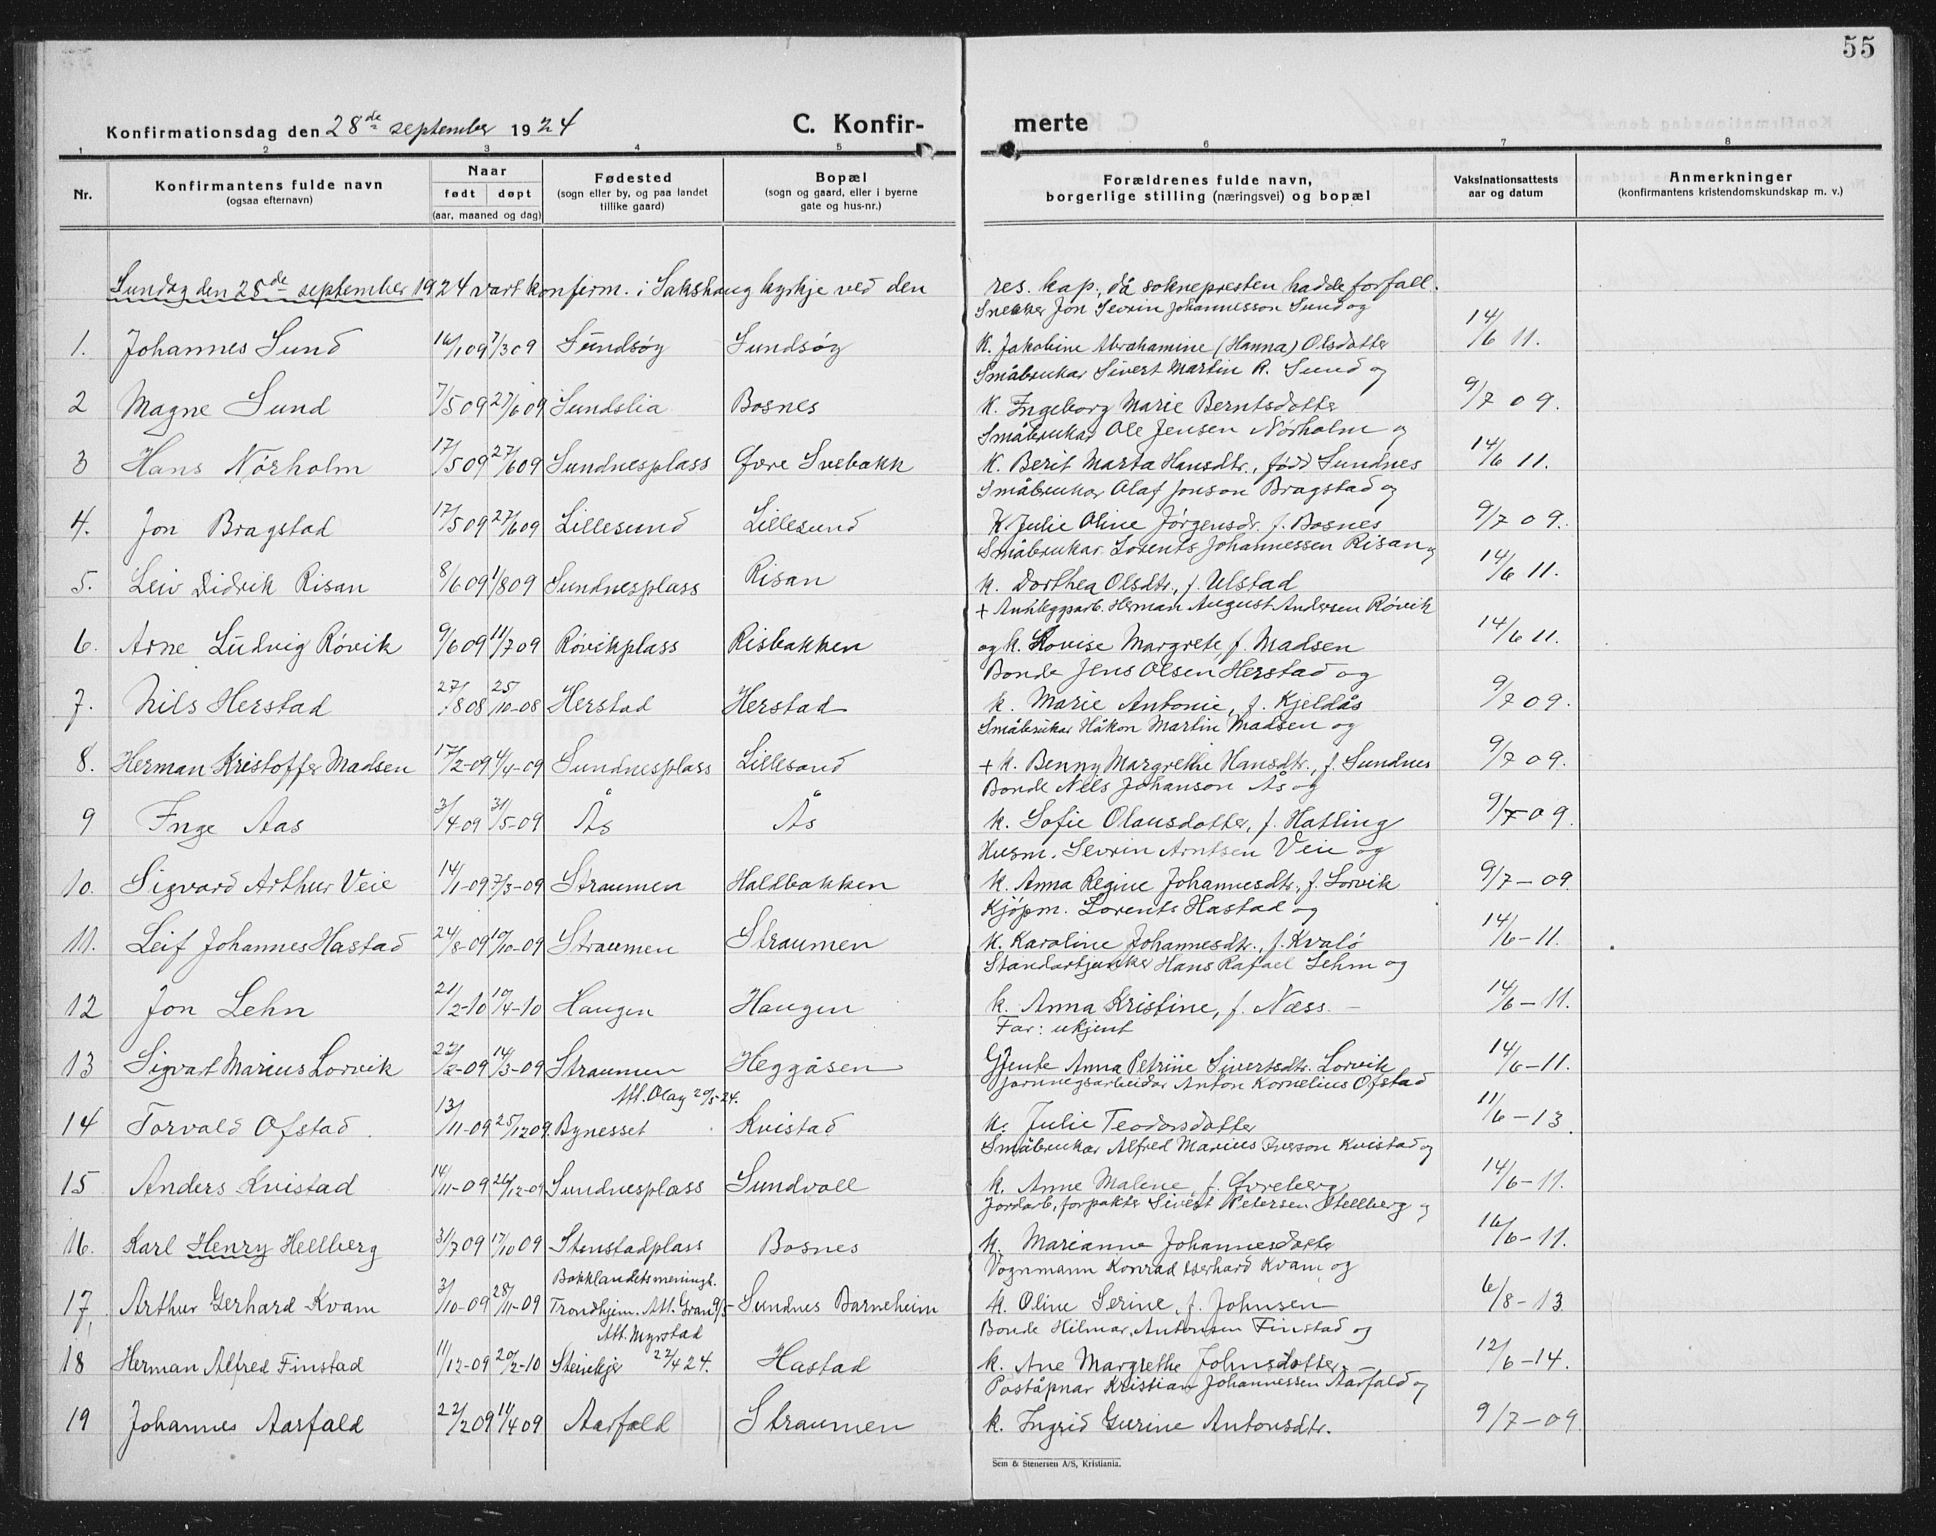 55
Konfirmationsdag den 28de september 1924
C. Konfirmerte
1 2 3 4 5 6 7 8
Nr.
Konfirmantens fulde navn
(ogsaa efternavn)
Naar
født døpt
(aar, maaned og dag)
Fødested
(sogn eller by, og paa landet
tillike gaard)
Bopæl
(sogn og gaard, eller i byerne
gate og hus-nr.)
Forældrenes fulde navn,
borgerlige stilling (næringsvei) og bopæl
Vaksinationsattests
aar og datum
Anmerkninger
(konfirmantens kristendomskundskap m. v.)
Sundag den 28de september 1924 vart konfirm. i Sakshaug kyrkje ved den res. kap., då soknepresten hadde forfall.
Snekker Jon Sevrin Johannesson Sund og
1. Johannes Sund 16/1 09 7/3 09 Sundsøy Sundsøy K. Jakobine Abrahamine (Hanna) Olsdotter 14/6 11.
Småbrukar Sivert Martin R. Sund og
2 Magne Sund 7/5 09 27/6 09 Sundslia Bosnes K. Ingeborg Marie Berntsdotter 9/7 09.
Småbrukar Ole Jensen Nørholm og
3 Hans Nørholm 17/5 09 27/6 09 Sundnesplass Øvre Svebakk K. Berit Marta Hansdtr., født Sundnes 14/6 11.
Småbrukar Olaf Jonson Bragstad og
4. Jon Bragstad 17/5 09 27/6 09 Lillesund Lillesund K. Julie Oline Jørgensdr. f. Bosnes 9/7 09.
Småbrukar Lorents Johannessen Risan og
5. Leiv Didrik Risan 8/6 09 1/8 09 Sundnesplass Risan k. Dorthea Olsdtr., f. Ulstad 14/6 11.
+ Anleggsarb. Herman August Andersen Røvik
6. Arne Ludvig Røvik 9/6 09 11/7 09 Røvikplass Risbakken og k. Lovise Margrete, f. Madsen 14/6 11.
Bonde Jens Olsen Herstad og
7. Nils Herstad 27/8 08 25/10-08 Herstad Herstad k. Marie Antonie, f. Kjeldås 9/7 09.
Småbrukar Håkon Martin Madsen og
8. Herman Kristoffer Madsen 17/2-09 4/4-09 Sundnesplass Lillesund + k. Benny Margrethe Hansdtr., f. Sundnes 9/7 09.
Bonde Nels Johanson Ås og
9 Inge Aas 3/4-09 31/5-09 Ås Ås k. Sofie Olausdotter, f. Hatling 9/7-09.
Husm. Sevrin Arntsen Veie og
10. Sigvard Arthur Veie 14/1-09 7/3-09 Straumen Haldbakken k. Anna Regine Johannesdtr., f. Lorvik 9/7-09.
Kjøpm. Lorents Hastad og
11. Leif Johannes Hastad 24/8-09 10/10-09 Straumen Straumen k. Karoline Johannesdtr., f. Kvalø 14/6-11.
Standartjunker Hans Rafael Lehn og
12 Jon Lehn 21/2-10 10/4-10 Haugen Haugen k. Anna Kristine, f. Næss. 14/6-11.
Far: ukjent
13 Sigvart Marius Lorvik 22/2-09 14/3-09 Straumen Heggåsen Gjente Anna Petrine Sivertsdtr. Lorvik 14/6-11.
Att. Olay 20/5 24. Jarnvegsarbeidar Anton Kornelius Ofstad
14 Torvald Ofstad 13/11-09 25/12 09. Bynesset Kvistad k. Julie Teodorsdotter 11/6-13.
Småbrukar Alfred Marius Iverson Kvistad og
15 Anders Kvistad 14/11-09 26/12-09 Sundnesplass Sundvoll k. Anne Malene, f. Øvreberg 14/6-11.
Jordarb., forpakter Sivert Petersen Hellberg og
16. Karl Henry Hellberg 31/7 09 17/10 09 Stenstadplass Bosnes k. Marianne Johannesdotter 16/6-11.
Bakklandets menigh. Vognmann Konrad Gerhard Kvam og
17, Arthur Gerhard Kvam 3/10-09 28/11-09 Trondhjem. Att. Gran 9/5 Sundnes Barneheim k. Oline Serine, f. Johnsen 6/8-13
Att. Myrstad Bonde Hilmar Antonsen Finstad og
18 Herman Alfred Finstad 11/12-09 20/2-10 Steinkjer 22/4 24. Hastad k. Ane Margrethe Johnsdotter 12/6-14.
Poståpnar Kristian Johannessen Aarfald og
19 Johannes Aarfald 22/2 09 11/4 09 Aarfald Straumen k. Ingrid Gurine Antonsdtr. 9/7-09.
Sem & Stenersen A/S, Kristiania.